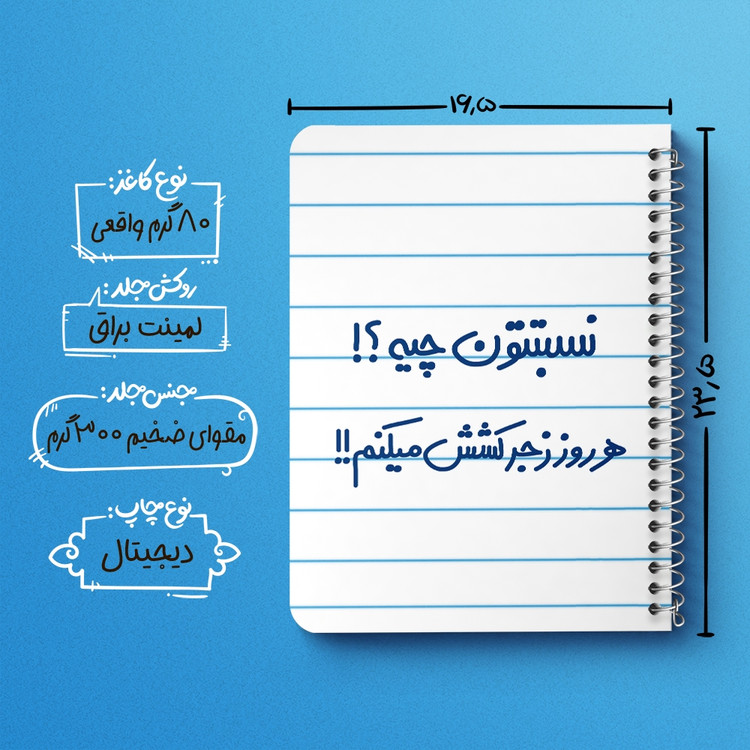 ۱۶٫۵
۲۳٫۵
نسبتتون چیه ؟!
هر روز زجر کشش میکنم!!
نوع کاغذ:
۸۰ گرم واقعی
روکش مجلد:
لمینت براق
جنس مجلد:
مقوای ضخیم ۳۰۰ گرم
نوع چاپ:
دیجیتال